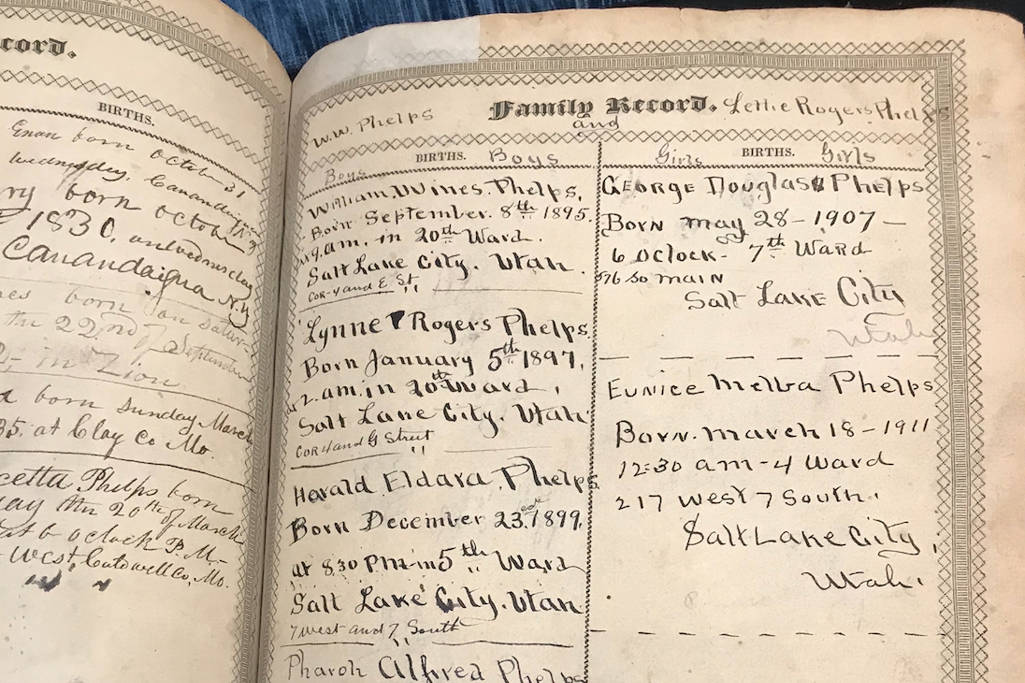 cord.
BIRTHS.
Enan born october 31
Wednesday, Canandaigua N.Y
ry born october
1830, on wednesday
Canandaigua N.Y
es born on satur-
the 22nd of September
in Zion
a born Sunday March
35. at Clay Co Mo.
cetta Phelps born
ay the 20th of March
at 6 oclock P.M-
West, Caldwell Co, Mo.
Family Record.
W.W. Phelps and Lettie Rogers Phelps
BIRTHS. Boys
Boys
William Wines Phelps,
Born September. 8th 1895.
9. a.m. in 20th Ward.
Salt Lake City. Utah.
Cor-4 and E St.
Lynne Rogers Phelps.
Born January 5th 1897,
at 2. a.m. in 20th Ward,
Salt Lake City. Utah
Cor 4 and G Street
Harald Eldara Phelps
Born December 23rd. 1899,
at 8.30 P.M-in 5th Ward
Salt Lake City. Utah
7 West and 7 South
Pharoh Alfred Phelps
Girls BIRTHS. Girls
George Douglass Phelps
Born may 28-1907-
6 oclock- 7th Ward
576 So main
Salt Lake City
Utah
Eunice Melba Phelps
Born. March 18-1911
12:30 am-4 Ward
217 West 7 South.
Salt Lake City,
Utah.